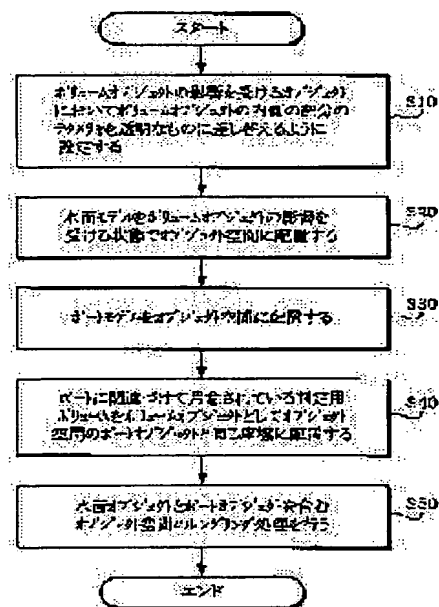 スタート
ボリュームオブジェクトの影響を受けるオブジェクト
においてボリュームオブジェクトの内側の部分の
テクスチャを透明なものに差し替えるように
設定する
S10
水面モデルをボリュームオブジェクトの影響を
受ける状態でオブジェクト空間に配置する
S20
ボートモデルをオブジェクト空間に配置する
S30
ボートに関連づけて用意されている判定用
ボリュームをボリュームオブジェクトとしてオブジェクト
空間のボートオブジェクトと同じ座標に配置する
S40
水面オブジェクトとボートオブジェクトを含む
オブジェクト空間をレンダリング処理を行う
S50
エンド